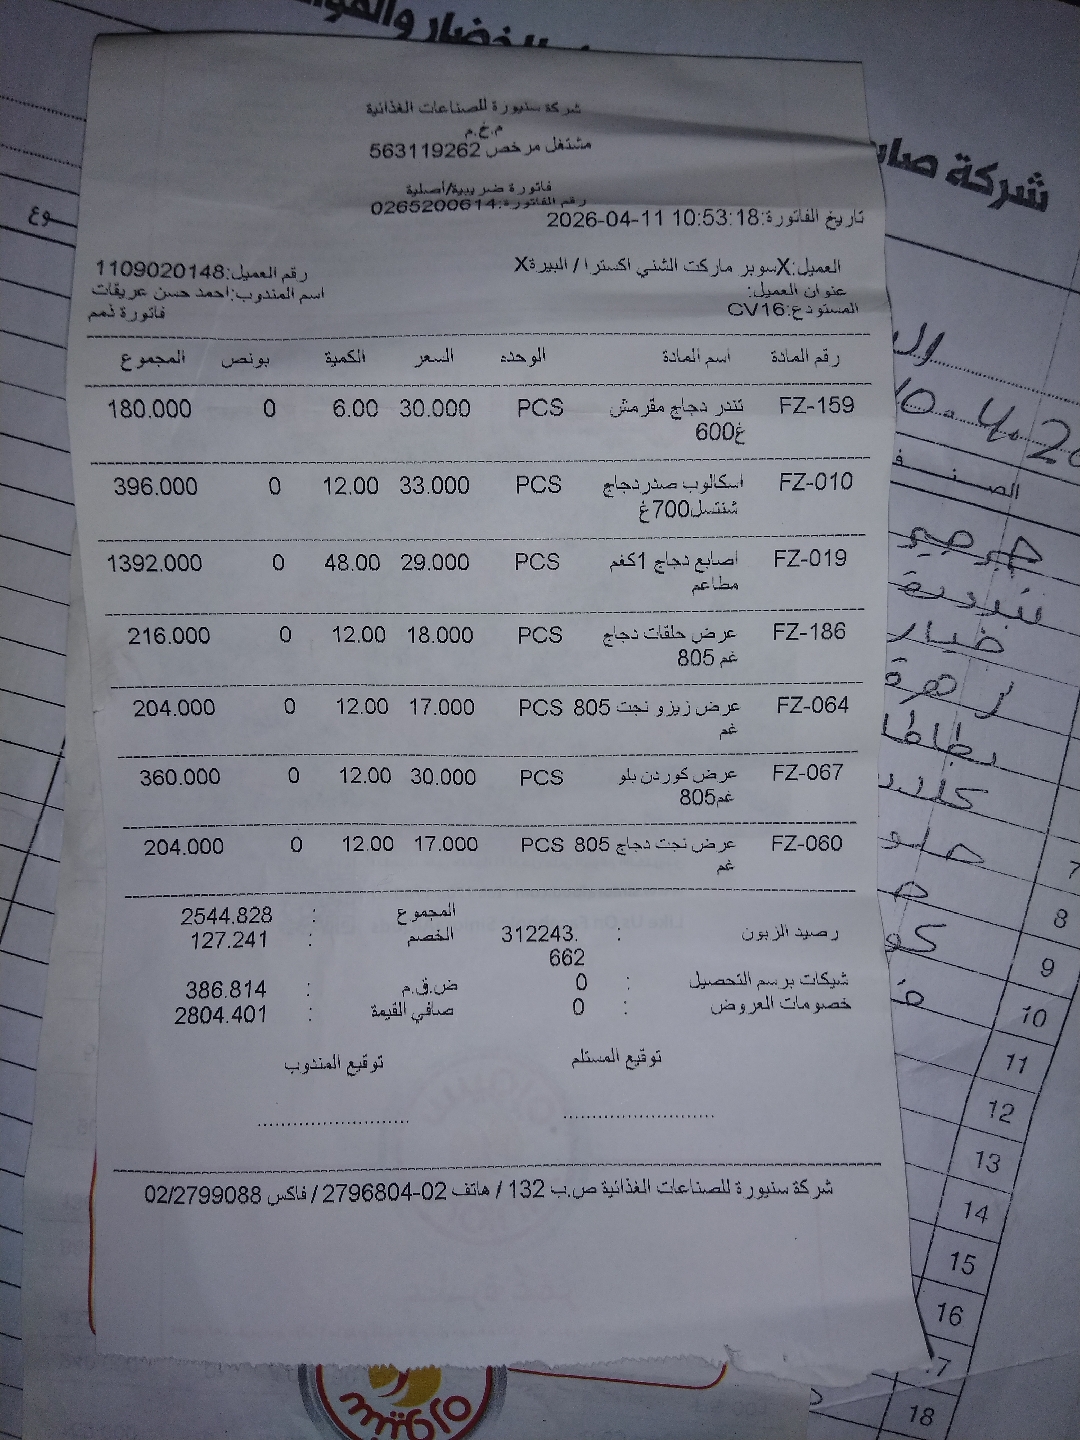 شركة سنيورة للصناعات الغذائية
م.خ.م
مشتغل مرخص 563119262
فاتورة ضريبية/أصلية
رقم الفاتورة:0265200614
تاريخ الفاتورة:2026-04-11 10:53:18
العميل:Xسوبر ماركت الشني اكسترا / البيرةX
رقم العميل:1109020148
عنوان العميل:
اسم المندوب:احمد حسن عريقات
المستودع:CV16
فاتورة ذمم
رقم المادة اسم المادة الوحده السعر الكمية بونص المجموع
FZ-159 تندر دجاج مقرمش PCS 30.000 6.00 0 180.000
600غ
FZ-010 اسكالوب صدردجاج PCS 33.000 12.00 0 396.000
شنتسل700غ
FZ-019 اصابع دجاج 1كغم PCS 29.000 48.00 0 1392.000
مطاعم
FZ-186 عرض حلقات دجاج PCS 18.000 12.00 0 216.000
805 غم
FZ-064 عرض زيزو نجت 805 PCS 17.000 12.00 0 204.000
غم
FZ-067 عرض كوردن بلو PCS 30.000 12.00 0 360.000
805غم
FZ-060 عرض نجت دجاج 805 PCS 17.000 12.00 0 204.000
غم
المجموع : 2544.828
رصيد الزبون : 312243.
662
الخصم : 127.241
شيكات برسم التحصيل : 0
ض.ق.م : 386.814
خصومات العروض : 0
صافي القيمة : 2804.401
توقيع المستلم توقيع المندوب
شركة سنيورة للصناعات الغذائية ص.ب 132 / هاتف 02-2796804 / فاكس 02/2799088
سنيورة
شركة
الصنف
جرجير
خيار
زهرة
بطاطا
7
8
9
10
11
12
13
14
15
16
18